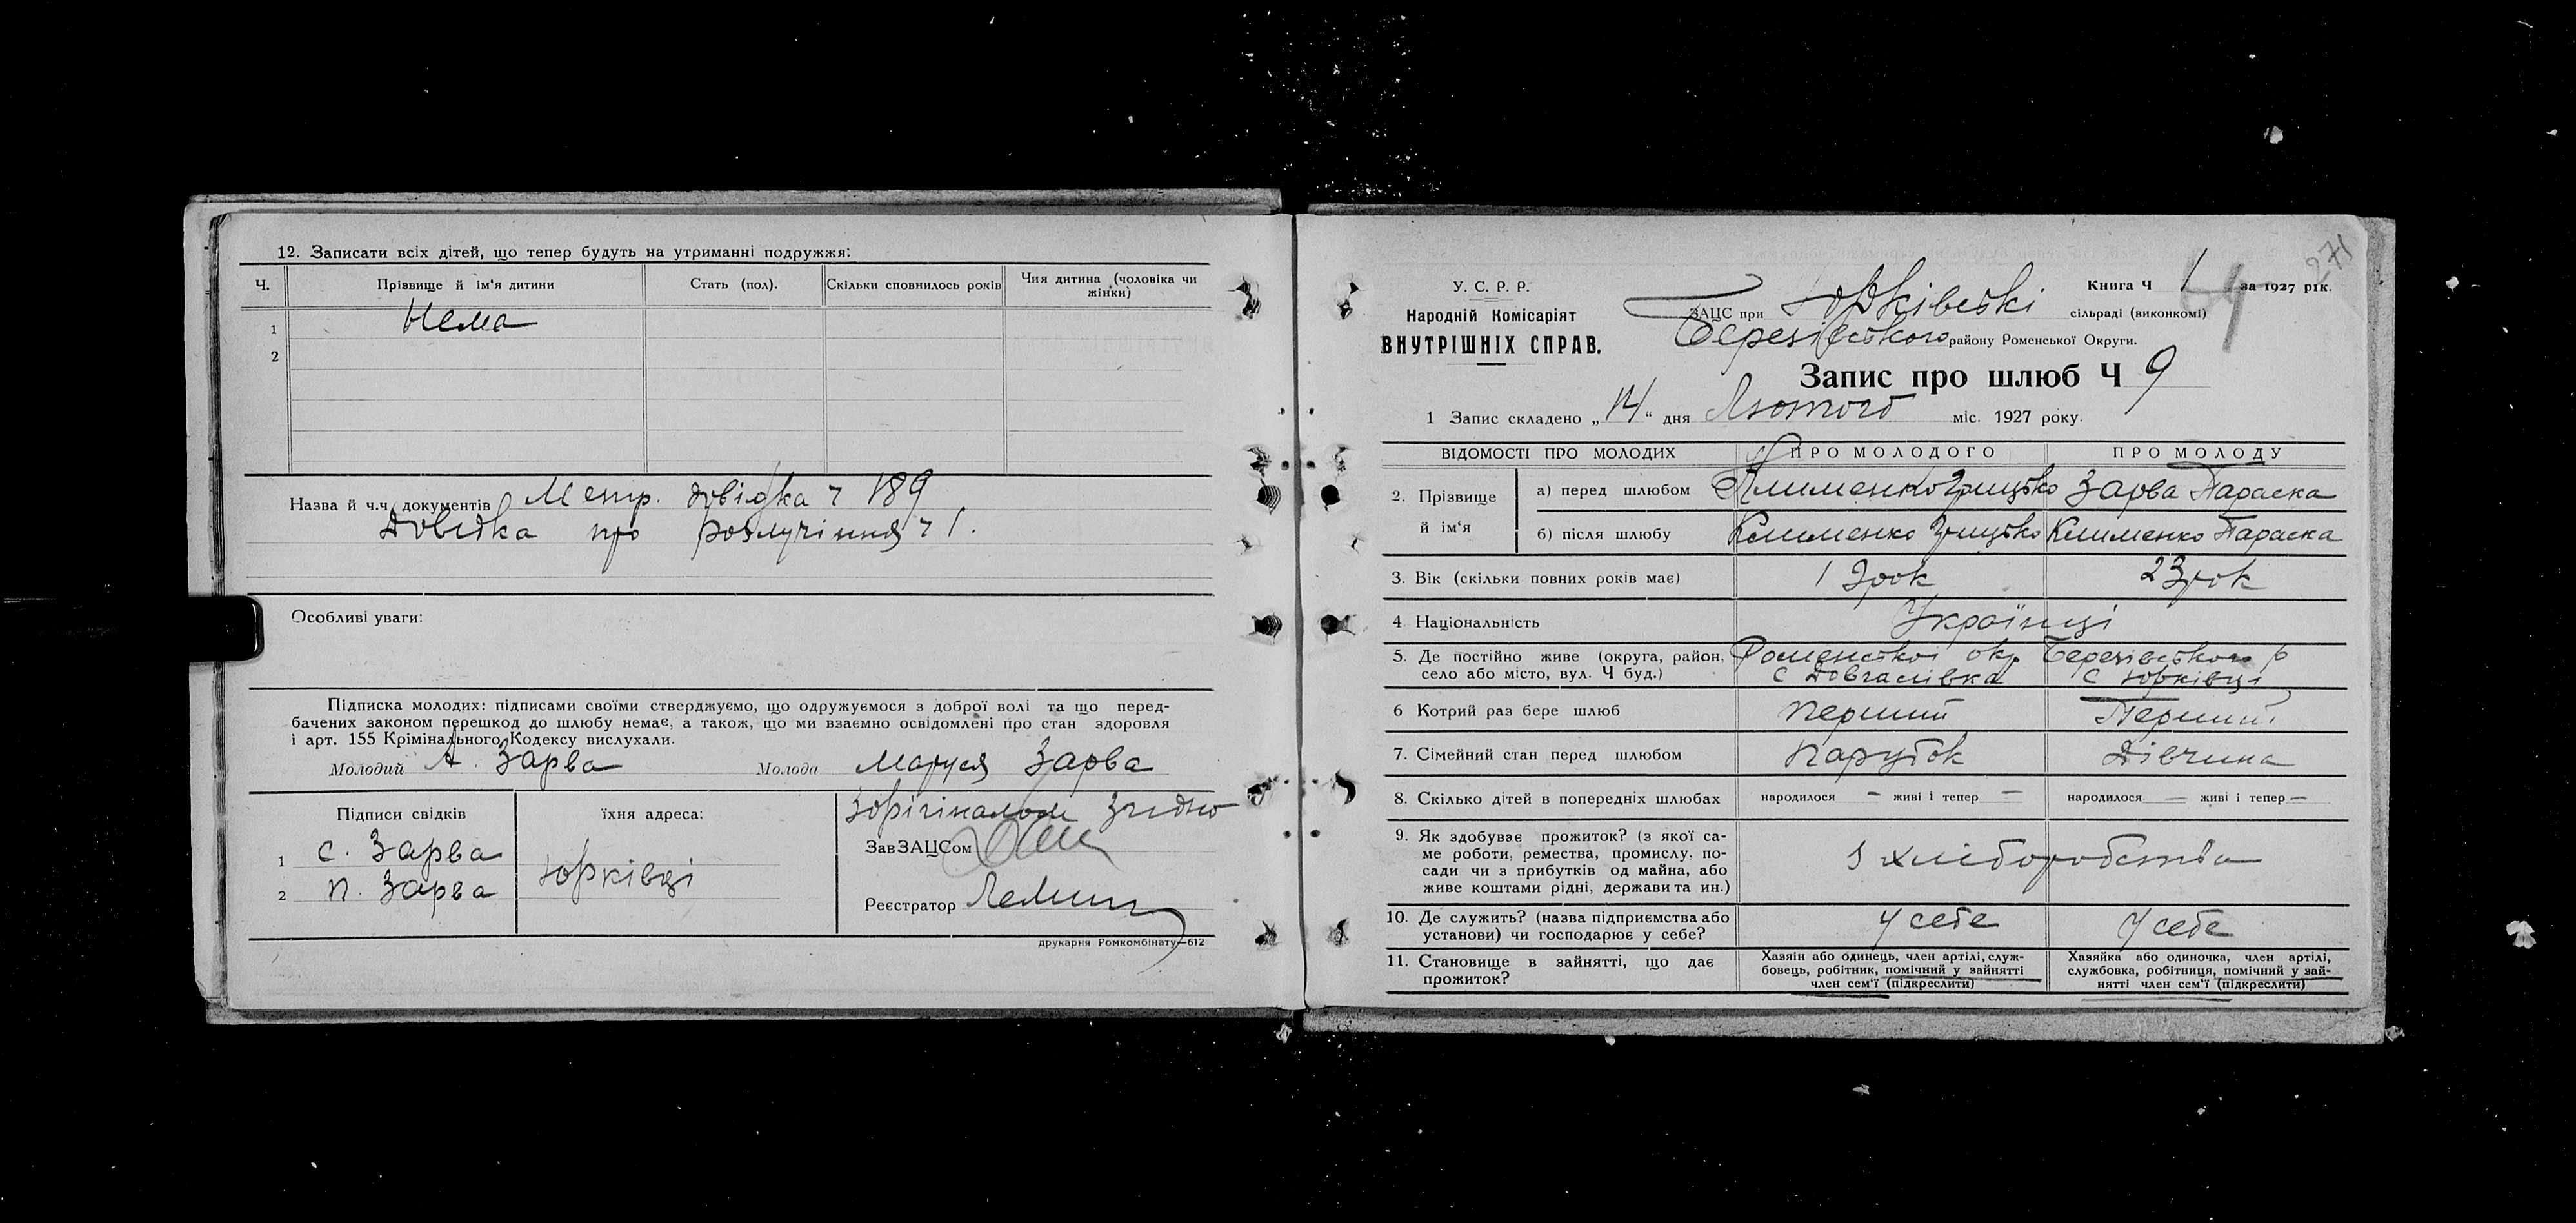 12. Записати всіх дітей, що тепер будуть на утриманні подружжя:
Ч.
Прізвище й ім'я дитини
Стать (пол).
Скільки сповнилось років
Чия дитина (чоловіка чи жінки)
1 Нема
2
Назва й ч.ч. документів Метр. довідка ч 189
Довідка про розлучіння ч 1.
Особливі уваги:
Підписка молодих: підписами своїми стверджуємо, що одружуємося з доброї волі та що перед-
бачених законом перешкод до шлюбу немає, а також, що ми взаємно освідомлені про стан здоровля
і арт. 155 Крімінального Кодексу вислухали.
Молодий А. Зарва Молода Маруся Зарва
Підписи свідків
їхня адреса:
1 С. Зарва
2 П. Зарва
Юрківці
З орігіналом згідно
ЗавЗАЦСом
Реєстратор
друкарня Ромкомбінату—612
271
У. С. Р. Р.
Народній Комісаріят
ВНУТРІШНІХ СПРАВ.
Книга Ч 1 за 1927 рік.
ЗАЦС при Юрківські сільраді (виконкомі)
Березівського району Роменської Округи.
Запис про шлюб Ч 9
1 Запис складено „14" дня Лютого міс. 1927 року.
ВІДОМОСТІ ПРО МОЛОДИХ ПРО МОЛОДОГО ПРО МОЛОДУ
2. Прізвище й ім'я
а) перед шлюбом Клименко Грицько Зарва Параска
б) після шлюбу Клименко Грицько Клименко Параска
3. Вік (скільки повних років має) 19 рок 23 рок
4 Національність Українці
5. Де постійно живе (округа, район, Роменської окр. Березівського р
село або місто, вул. Ч буд.) с Довгалівка с Юрківці
6 Котрий раз бере шлюб перший Перший
7. Сімейний стан перед шлюбом Парубок Дівчина
8. Скілько дітей в попередніх шлюбах народилося — живі і тепер — народилося — живі і тепер —
9. Як здобуває прожиток? (з якої са-
ме роботи, ремества, промислу, по-
сади чи з прибутків од майна, або
живе коштами рідні, держави та ин.)
з хліборобства
10. Де служить? (назва підприємства або
установи) чи господарює у себе?
У себе У себе
11. Становище в зайнятті, що дає
прожиток?
Хазяін або одинець, член артілі, служ-
бовець, робітник, помічний у зайнятті
член сем'ї (підкреслити)
Хазяйка або одиночка, член артілі,
службовка, робітниця, помічний у зай-
нятті член сем'ї (підкреслити)